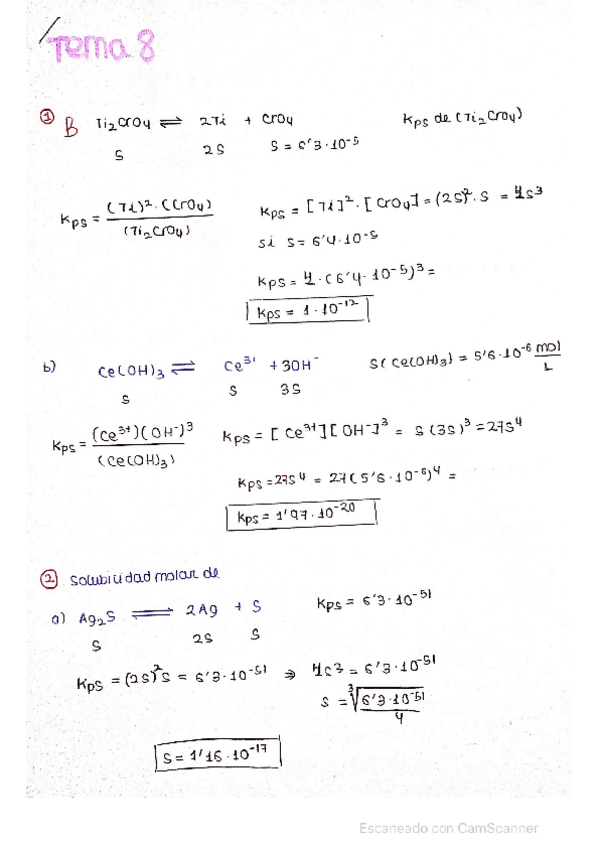 Tema 8
① B Ti2CrO4 ⇌ 2Ti + CrO4 Kps de (Ti2CrO4)
S 2S S = 6'3·10-5
Kps = (Ti)2·(CrO4) / (Ti2CrO4) Kps = [Ti]2·[CrO4] = (2S)2·S = 4S3
si S = 6'4·10-5
Kps = 4·(6'4·10-5)3 =
Kps = 1·10-12
b) Ce(OH)3 ⇌ Ce3+ + 3OH- S(Ce(OH)3) = 5'6·10-6 mol/L
S S 3S
Kps = (Ce3+)(OH-)3 / (Ce(OH)3) Kps = [Ce3+][OH-]3 = S(3S)3 = 27S4
Kps = 27S4 = 27(5'6·10-6)4 =
Kps = 1'97·10-20
② Solubilidad molar de
a) Ag2S ⇌ 2Ag + S Kps = 6'3·10-51
S 2S S
Kps = (2S)2S = 6'3·10-51 ⇒ 4S3 = 6'3·10-51
S = ∛(6'3·10-51 / 4)
S = 1'16·10-17
Escaneado con CamScanner